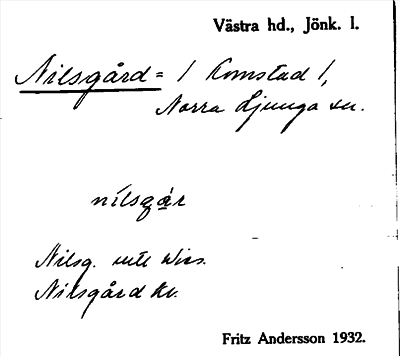 Västra hd., Jönk. l.
Nilsgård = / Komstad /,
Norra Ljunga sn.
nílsgár
Nilsg. utl Wirs.
Nilsgård kv.
Fritz Andersson 1932.